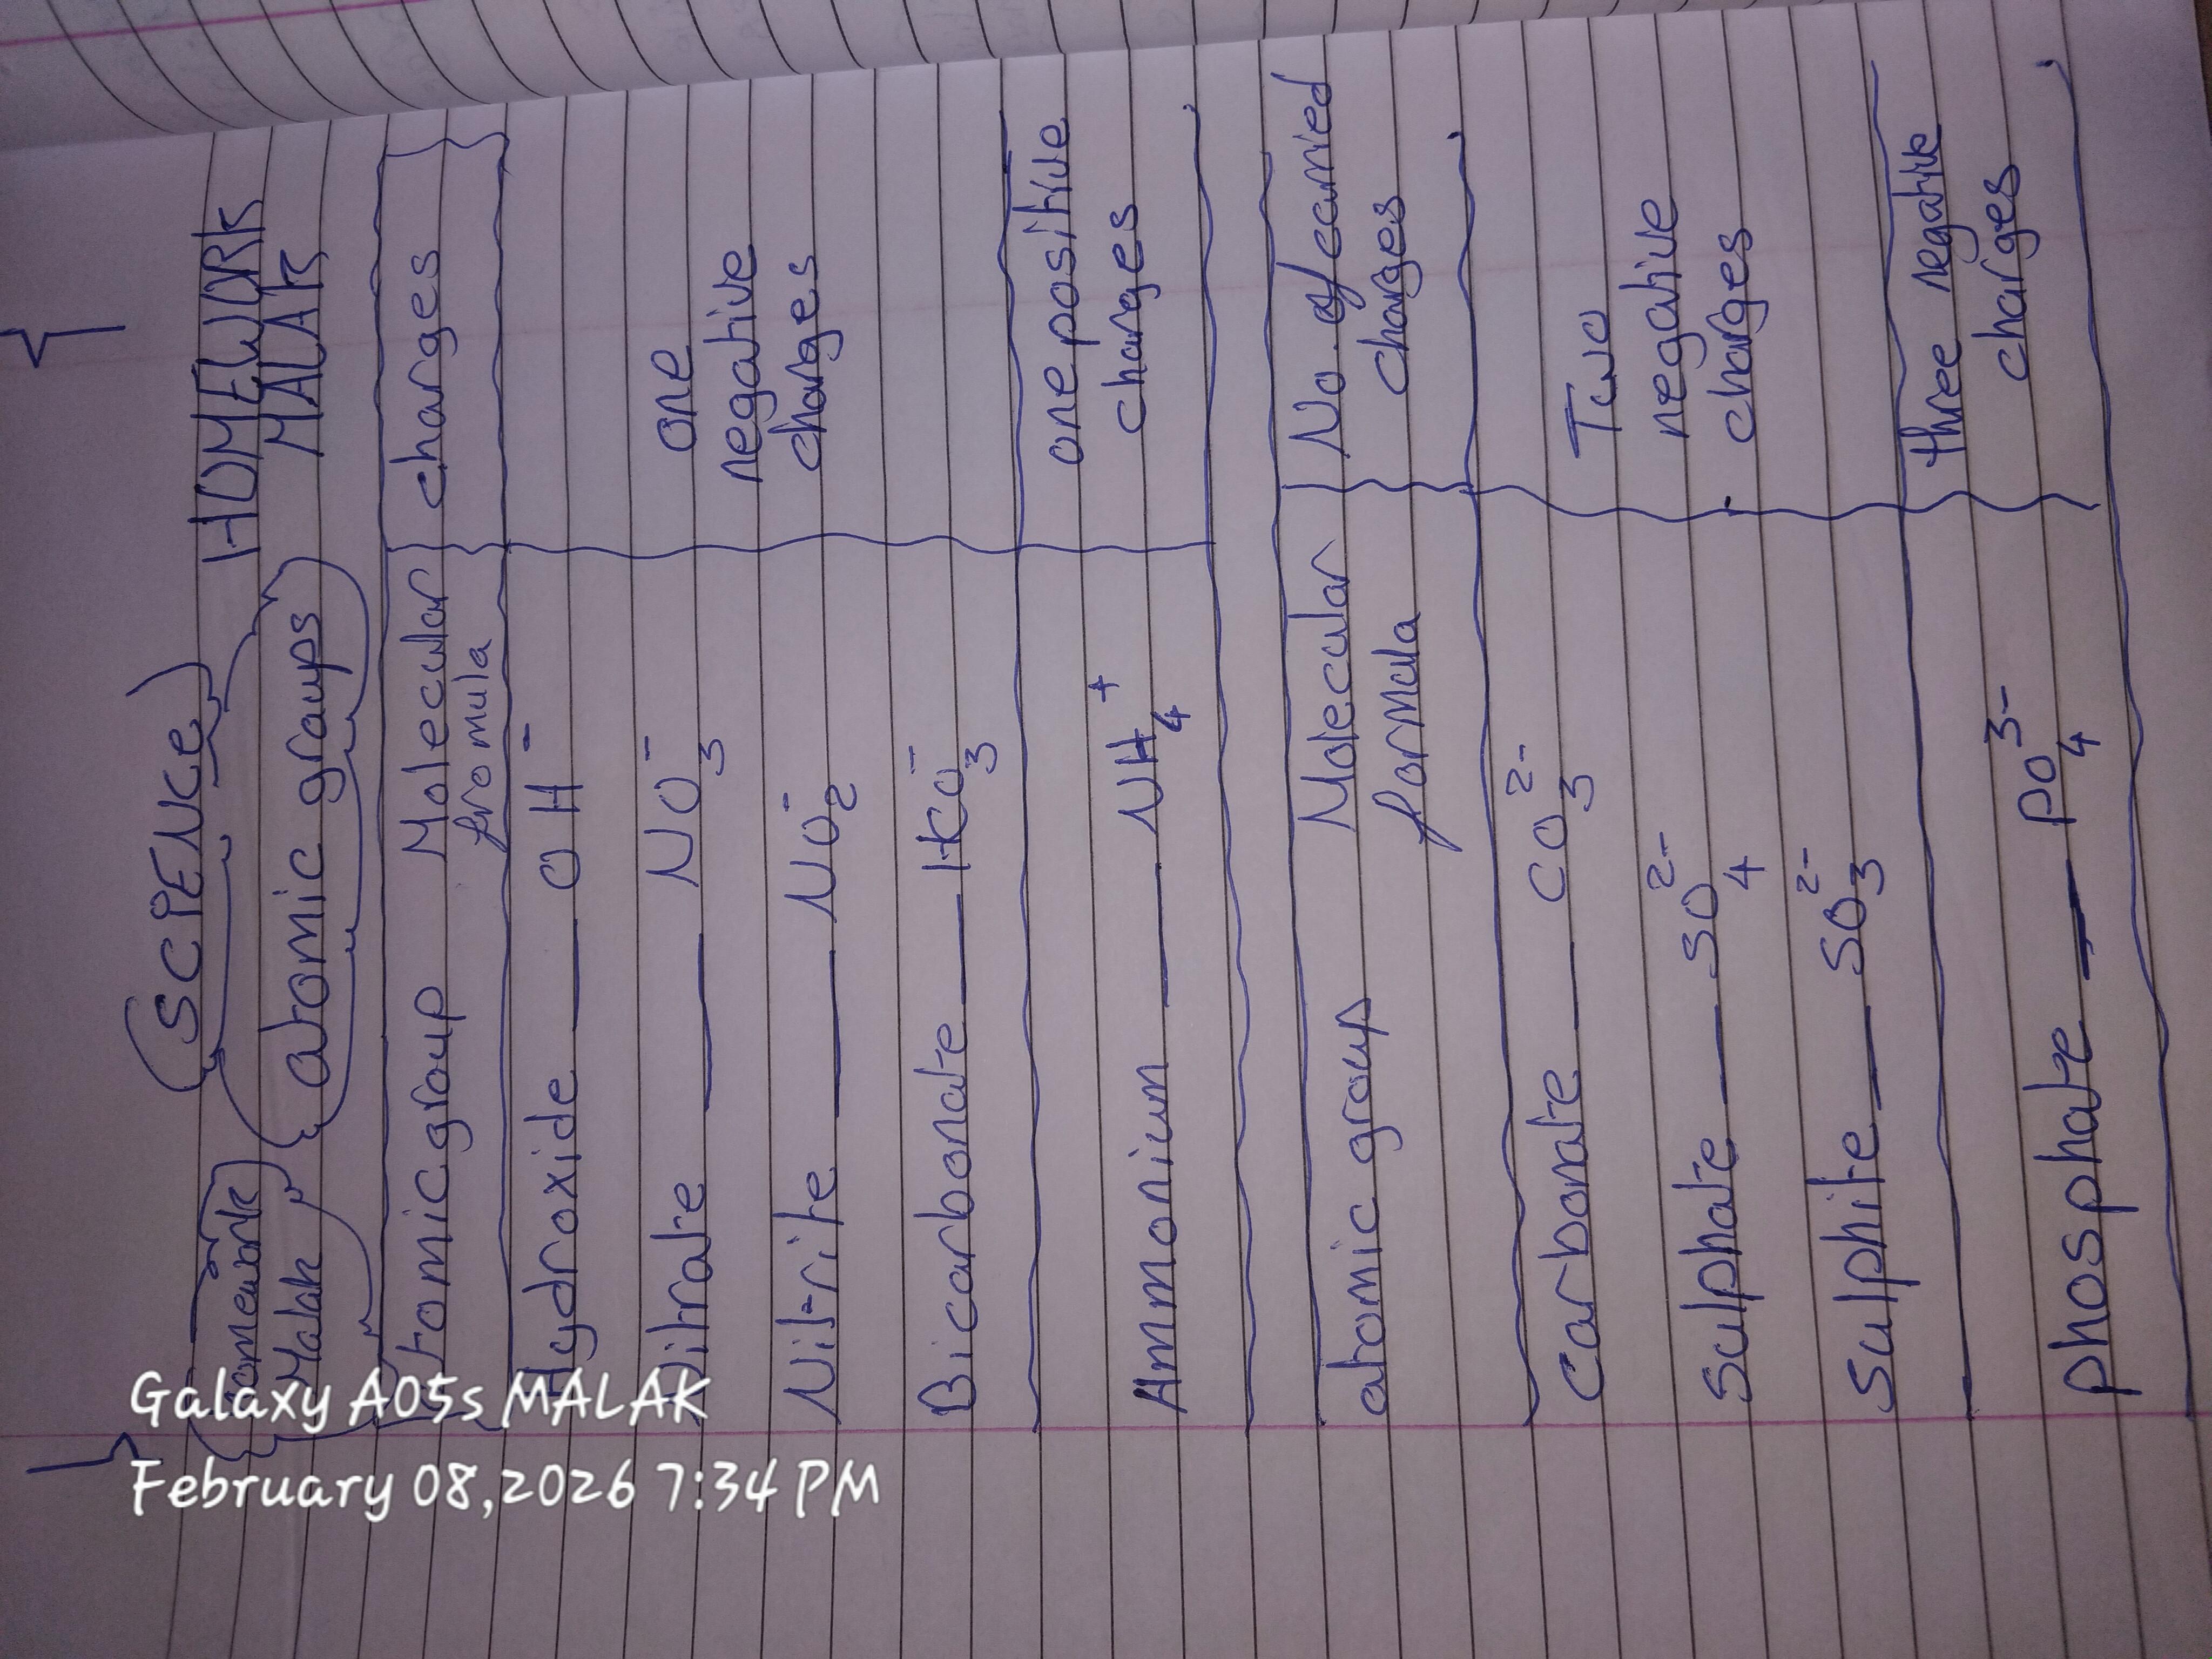 (SCIENCE)
HOMEWORK
Homework
Malak
atomic groups
MALAK
atomic group Molecular fromula charges
Hydroxide — OH⁻
Nitrate — NO₃⁻
one negative charges
Nitrite — NO₂⁻
Bicarbonate — HCO₃⁻
Ammonium — NH₄⁺
one positive charges
atomic group Molecular formula No. of carried charges
Carbonate — CO₃²⁻
Sulphate — SO₄²⁻
Two negative charges
Sulphite — SO₃²⁻
phosphate — PO₄³⁻
three negative charges
Galaxy A05s MALAK
February 08,2026 7:34 PM